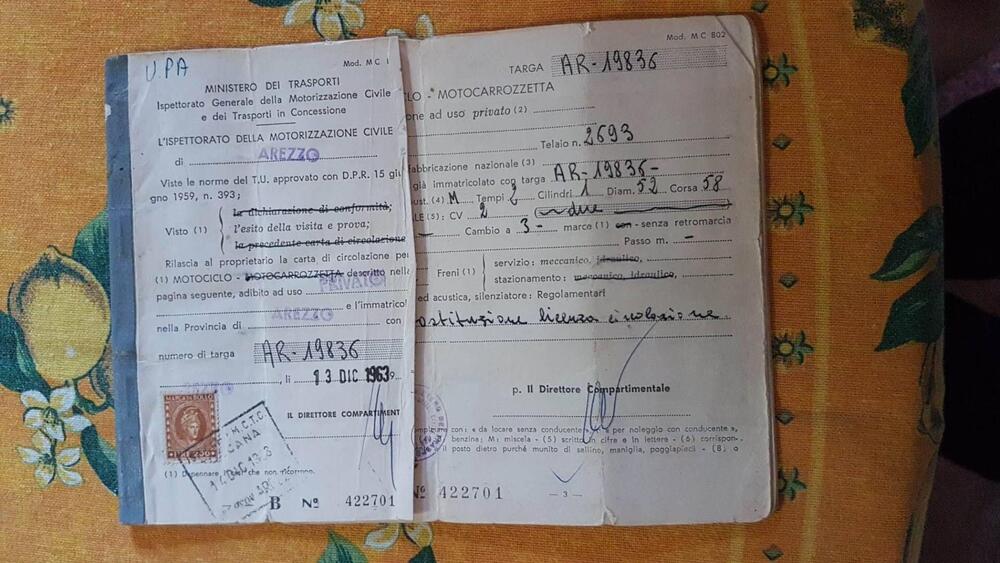 U.PA
Mod. M C 1
MINISTERO DEI TRASPORTI
Ispettorato Generale della Motorizzazione Civile
e dei Trasporti in Concessione
L'ISPETTORATO DELLA MOTORIZZAZIONE CIVILE
di AREZZO
Viste le norme del T.U. approvato con D.P.R. 15 giu
gno 1959, n. 393;
la dichiarazione di conformità;
Visto (1) l'esito della visita e prova;
la precedente carta di circolazione
Rilascia al proprietario la carta di circolazione pe
(1) MOTOCICLO - MOTOCARROZZETTA descritto nella
pagina seguente, adibito ad uso PRIVATO
e l'immatricol
AREZZO
nella Provincia di con
numero di targa AR-19836
AREZZO, li 13 DIC 1963 9
IL DIRETTORE COMPARTIMENT
MARCA DA BOLLO
(1) Depennare quel che non ricorrono.
B No 422701
Mod. M C 802
TARGA AR-19836
CLO - MOTOCARROZZETTA
one ad uso privato (2)
Telaio n. 2693
fabbricazione nazionale (3)
già immatricolato con targa AR-19836-
ust. (4) M Tempi 2 Cilindri 1 Diam. 52 Corsa 58
LE (5): CV 2 (due
Cambio a 3- marce (1) con - senza retromarcia
Passo m. -
Freni (1) servizio: meccanico, idraulico,
stazionamento: meccanico, idraulico,
ed acustica, silenziatore: Regolamentari
ostituzione licenza circolazione
p. Il Direttore Compartimentale
con: « da locare senza conducente per noleggio con conducente »,
benzina; M: miscela - (5) scritto in cifre e in lettere - (6) corrispon-
il posto dietro purché munito di sellino, maniglia, poggiapiedi - (8) o
No 422701
— 3 —